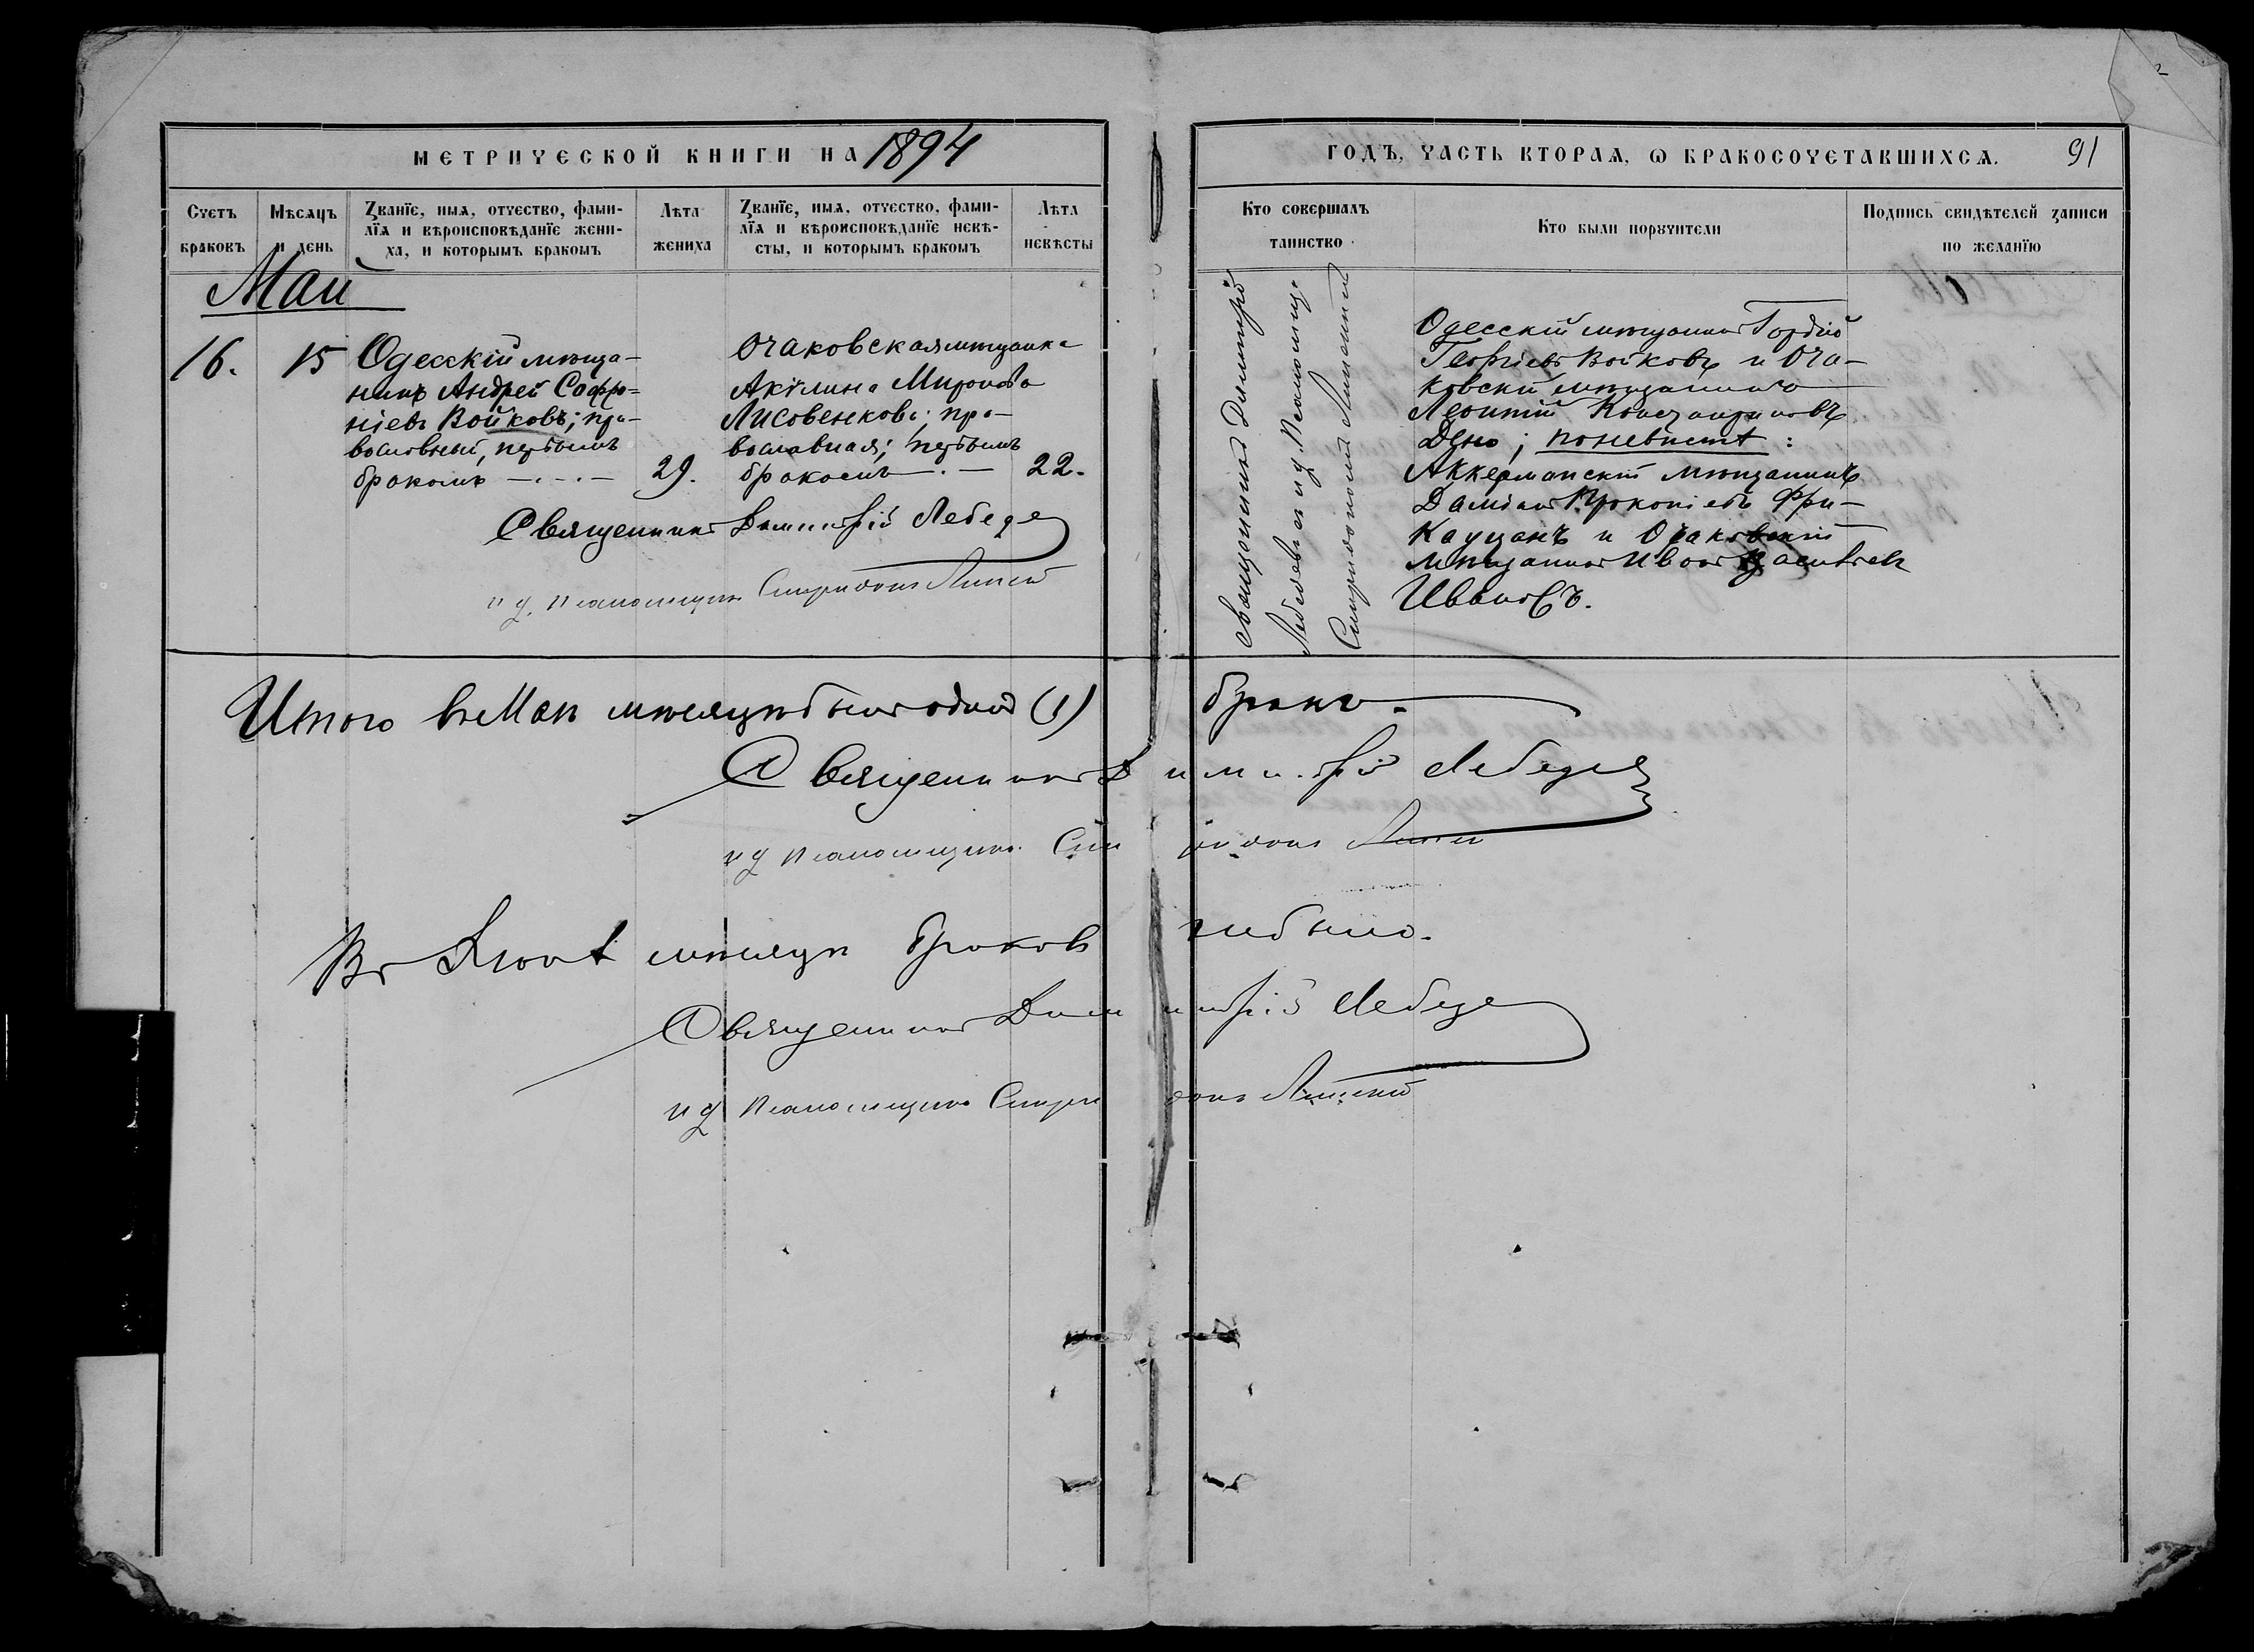 МЕТРИЧЕСКОЙ КНИГИ НА 1894
ГОДЪ, ЧАСТЬ ВТОРАЯ, Ѡ БРАКОСОЧЕТАВШИХСЯ. 91
Счетъ браковъ
Мѣсяцъ и день
Званїе, имя, отчество, фами-
лїя и вѣроисповѣданїе жени-
ха, и которымъ бракомъ
Лѣта жениха
Званїе, имя, отчество, фами-
лїя и вѣроисповѣданїе невѣ-
сты, и которымъ бракомъ
Лѣта невѣсты
Кто совершалъ таинство
Кто были порꙋчители
Подпись свидѣтелей записи по желанїю
Май
16. 15
Одесскій мѣща-
нинъ Андрей Софро-
ніевъ Войковъ; пра-
вославный, первымъ
бракомъ 29.
Очаковская мѣщанка
Акілина Миронова
Лисовенкова; пра-
вославная; первымъ
бракомъ 22.
Священникъ Димитрій Лебедев
и д. Псаломщика Спиридонъ
Священникъ Димитрій
Лебедевъ и д. Псаломщ.
Спиридономъ
Одесскій мѣщанинъ Гордій
Георгіевъ Войковъ и Оча-
ковскій мѣщанинъ
Леонтій Константиновъ
Дено; по невѣстѣ:
Аккерманскій мѣщанинъ
Даміанъ Прокопіевъ Фри-
кацанъ и Очаковскій
мѣщанинъ Иванъ Васильевъ
Ивановъ.
Итого въ Маѣ мѣсяцѣ былъ одинъ (1) бракъ.
Священникъ Димитрій Лебедев
и д Псаломщика Спиридонъ
Въ Іюнѣ мѣсяцѣ браковъ не было.
Священникъ Димитрій Лебедев
и д Псаломщика Спиридонъ